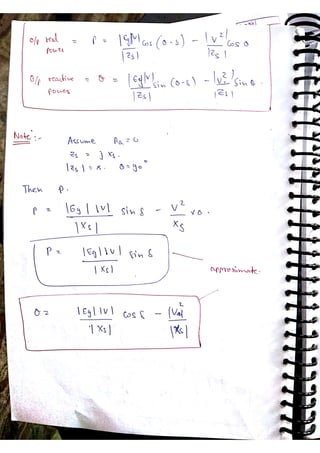 o/p real = P = |Eg||V| / |Zs| cos (θ-δ) - |V²| / |Zs| cos θ
power
O/p reactive = Q = |Eg||V| / |Zs| sin (θ-δ) - |V²| / |Zs| sin θ.
power
Note :-
Assume Ra = 0
Zs = j Xs.
|Zs| = x. θ = 90°
Then P.
P = |Eg| |V| / |Xs| sin δ - V² / Xs x 0.
P = |Eg| |V| / |Xs| sin δ
approximate.
Q = |Eg| |V| / |Xs| cos δ - |V|² / |Xs|